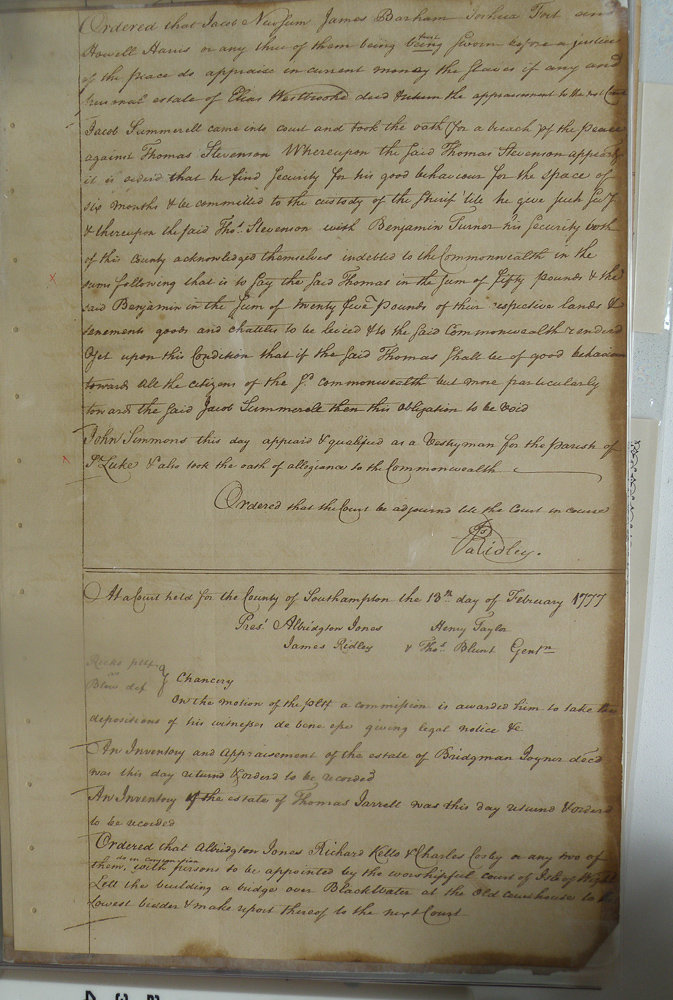 Ordered that Jacob Newsum James Barham Joshua Fort and
Howell Harris or any three of them being first Sworn before a justice
of the peace do appraise in current money the slaves if any and
personal estate of Elias Westbrooke deced & return the appraisement to the next Court
Jacob Summerell came into court and took the oath for a breach of the peace
against Thomas Stevenson Whereupon the said Thomas Stevenson appeard
it is orderd that he find Security for his good behaviour for the space of
six months & be committed to the custody of the Sherif till he give such Sec.y
& thereupon the said Tho.s Stevenson with Benjamin Turner his Security both
of this County acknowledged themselves indebted to the Commonwealth in the
sums following that is to say the said Thomas in the Sum of fifty pounds & the
said Benjamin in the Sum of twenty five pounds of their respective lands &
tenements goods and chattles to be levied & to the said Commonwealth renderd
Yet upon this Condition that if the said Thomas shall be of good behaviour
towards all the citizens of the s.d commonwealth but more particularly
toward the said Jacob Summerell then this obligation to be void
John Simmons this day appeard & qualified as a Vestryman for the parish of
S.t Luke & also took the oath of allegiance to the Commonwealth
Ordered that the Court be adjournd till the Court in course
Ja Ridley.
At a Court held for the County of Southampton the 13th day of February 1777
Pres.t Albridgton Jones Henry Taylor
James Ridley & Tho.s Blunt Gentn
Ricks pltf
vs
Blow def } Chancery
On the motion of the pltf a commission is awarded him to take the
depositions of his witnesses de bene esse giving legal notice &c
An Inventory and Appraisement of the estate of Bridgman Joyner decd
was this day returnd & orderd to be recorded
An Inventory of the estate of Thomas Jarrell was this day returnd & orderd
to be recorded
Ordered that Albridgton Jones Richard Kello & Charles Cosby or any two of
them, do in conjunction with persons to be appointed by the worshipful court of Isle of Wight
Lett the building a bridge over BlackWater at the Old Courthouse to the
lowest bidder & make report thereof to the next Court